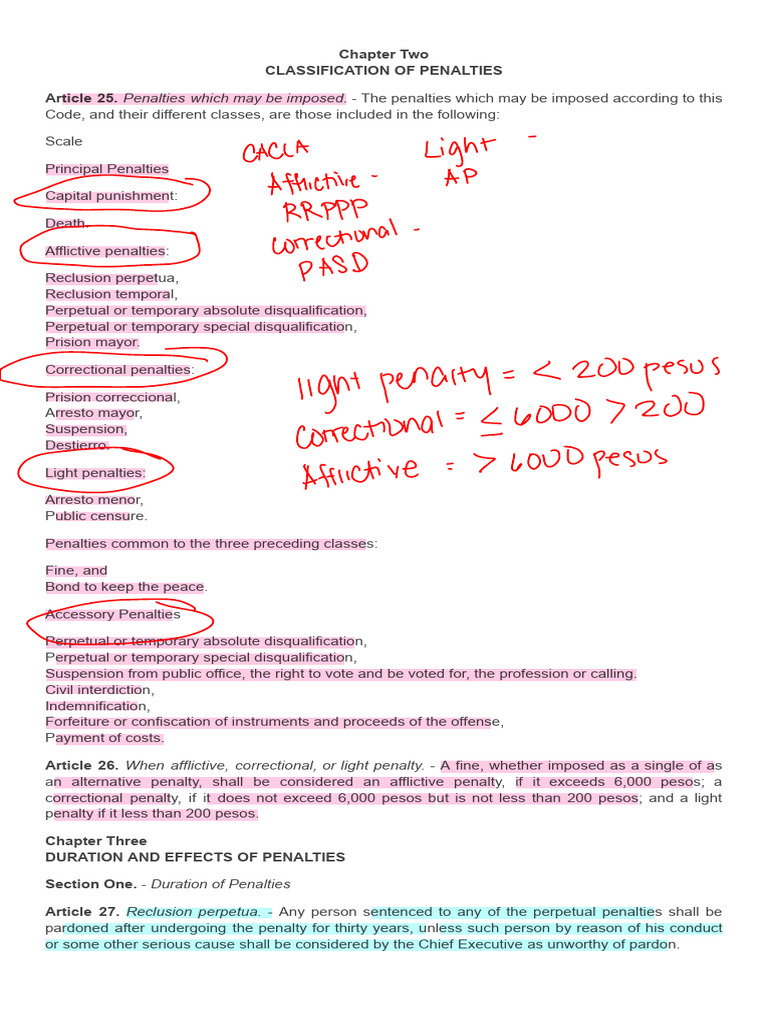 Chapter Two
CLASSIFICATION OF PENALTIES
Article 25. Penalties which may be imposed. - The penalties which may be imposed according to this
Code, and their different classes, are those included in the following:
Scale
Principal Penalties
Capital punishment:
Death.
Afflictive penalties:
Reclusion perpetua,
Reclusion temporal,
Perpetual or temporary absolute disqualification,
Perpetual or temporary special disqualification,
Prision mayor.
Correctional penalties:
Prision correccional,
Arresto mayor,
Suspension,
Destierro.
Light penalties:
Arresto menor,
Public censure.
Penalties common to the three preceding classes:
Fine, and
Bond to keep the peace.
Accessory Penalties
Perpetual or temporary absolute disqualification,
Perpetual or temporary special disqualification,
Suspension from public office, the right to vote and be voted for, the profession or calling.
Civil interdiction,
Indemnification,
Forfeiture or confiscation of instruments and proceeds of the offense,
Payment of costs.
Article 26. When afflictive, correctional, or light penalty. - A fine, whether imposed as a single of as
an alternative penalty, shall be considered an afflictive penalty, if it exceeds 6,000 pesos; a
correctional penalty, if it does not exceed 6,000 pesos but is not less than 200 pesos; and a light
penalty if it less than 200 pesos.
Chapter Three
DURATION AND EFFECTS OF PENALTIES
Section One. - Duration of Penalties
Article 27. Reclusion perpetua. - Any person sentenced to any of the perpetual penalties shall be
pardoned after undergoing the penalty for thirty years, unless such person by reason of his conduct
or some other serious cause shall be considered by the Chief Executive as unworthy of pardon.
CACLA
Afflictive -
RRPPP
Correctional -
PASD
Light -
AP
light penalty = < 200 pesos
Correctional = ≤ 6000 > 200
Afflictive = > 6000 pesos